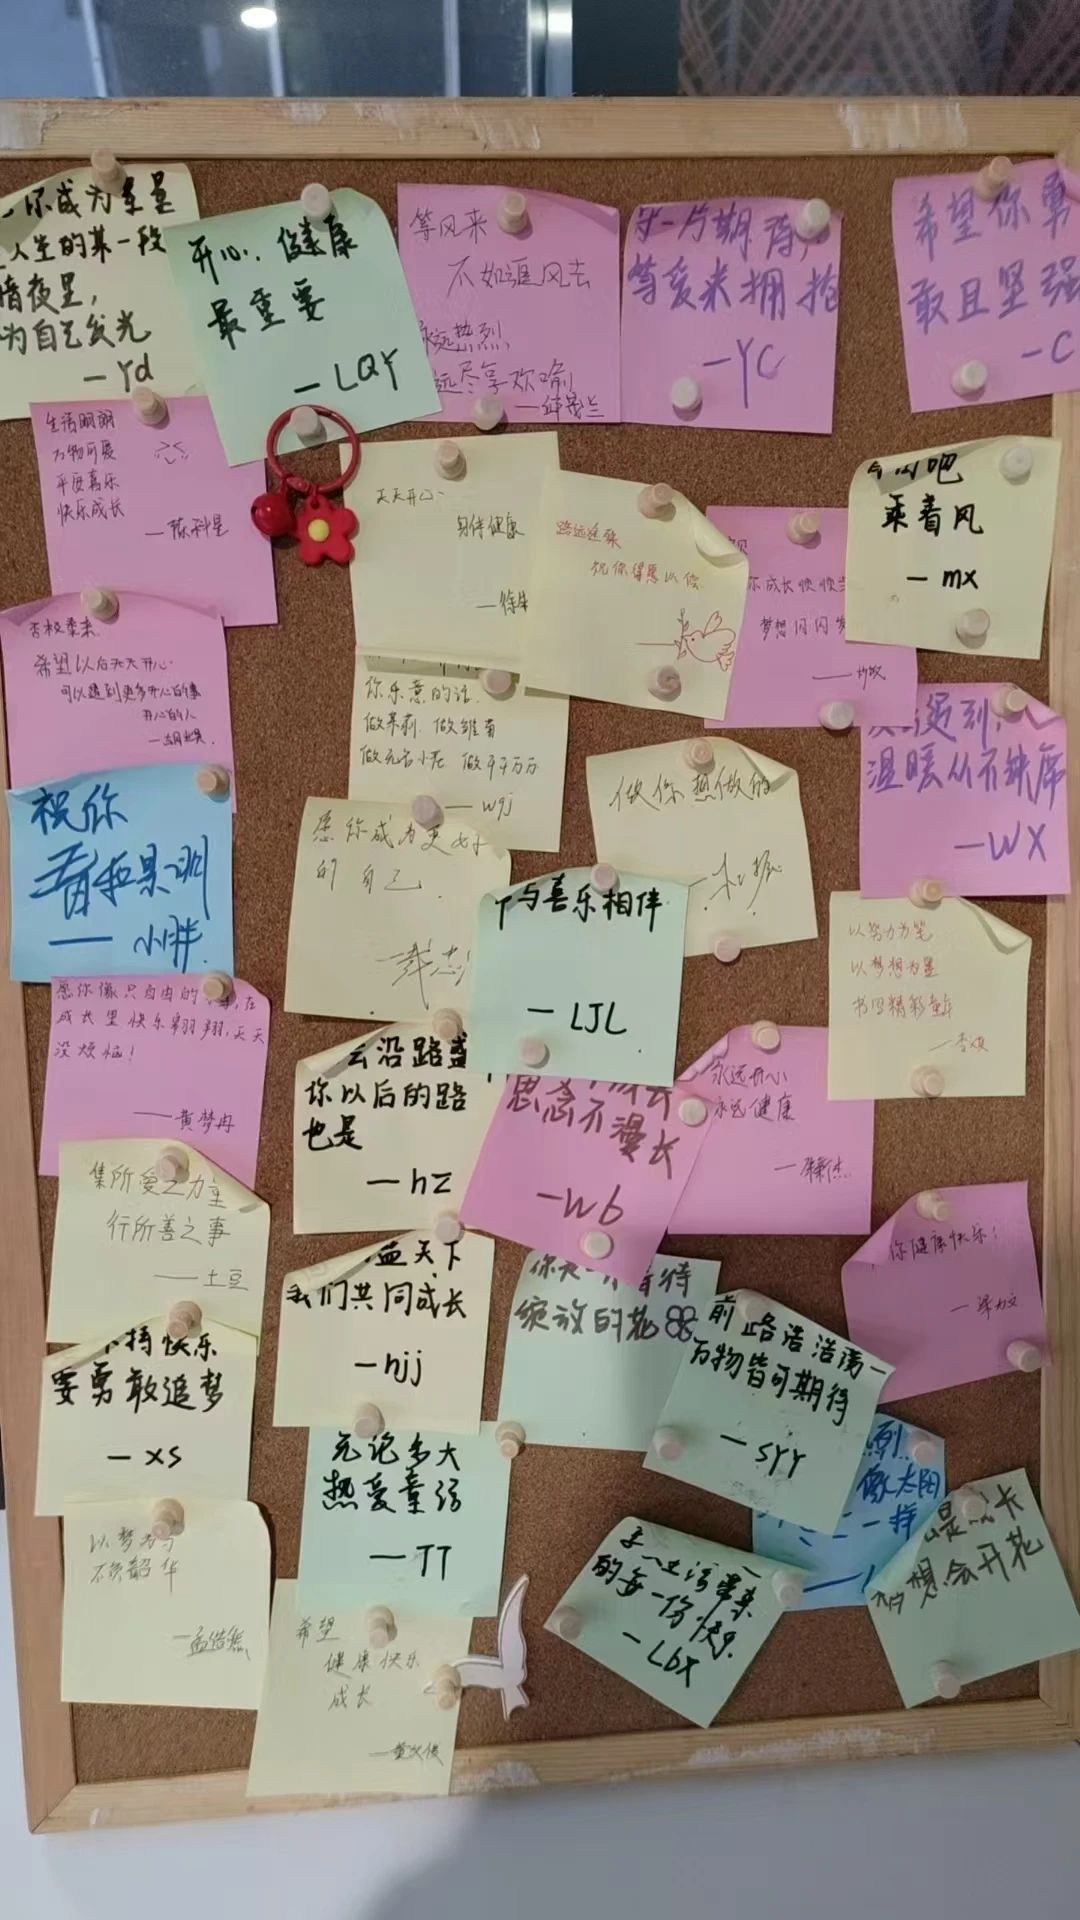 你成为星星
人生的某一段
暗夜里,
为自己发光
—Yd
开心、健康
最重要
—LQY
等风来
不如追风去
永远热烈
远尽享欢喻
守一片期待,
等爱来拥抱
—YC
希望你勇
敢且坚强
—C
生活明朗
万物可爱
平安喜乐
快乐成长
—陈科星
天天开心
身体健康
路远迢迢
祝你得愿以偿
你成长快快
梦想闪闪
吧
乘着风
—mx
否极泰来
希望以后天天开心
可以遇到更多开心的事
开心的人
你乐意的话,
做茉莉,做雏菊
做无名小花,做千千万万
—wgj
遇到,
温暖从不缺席
—WX
祝你
小胖
愿你成为更好
的自己
做你想做的
与喜乐相伴
—LJL
以努力为笔
以梦想为墨
书写精彩童年
愿你像只自由的小鸟,在
成长里快乐翱翔,天天
没烦恼!
—黄梦冉
沿路盛
你以后的路
也是
—hz
思念不漫长
—Wb
永远开心
永远健康
集所爱之力量
行所善之事
—土豆
蓝天下
我们共同成长
—hjj
你健康快乐!
绽放的花
前路浩浩荡
万物皆可期待
—SYY
持快乐
要勇敢追梦
—xs
无论多大
热爱童话
—TT
热烈
像太阳
一样
想会开花
生活带来
的每一份快乐
—Lbx
以梦为马
不负韶华
希望
健康快乐
成长